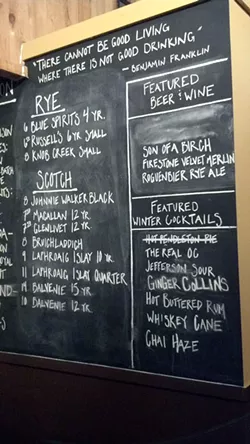 "THERE CANNOT BE GOOD LIVING
WHERE THERE IS NOT GOOD DRINKING"
- BENJAMIN FRANKLIN
RYE
6 BLUE SPIRITS 4 YR.
RUSSELL'S 6 YR SMALL
8 KNOB CREEK SMALL
SCOTCH
8 JOHNNIE WALKER BLACK
MACALLAN 12 YR.
GLENLIVET 12 YR.
8 BRUICHLADDICH
9 LAPHROAIG ISLAY 10 YR.
11 LAPHROAIG ISLAY QUARTER
14 BALVENIE 15 YR.
10 BALVENIE 12 YR.
FEATURED
BEER & WINE
SON OF A BIRCH
FIRESTONE VELVET MERLIN
ROGUENBIER RYE ALE
FEATURED
WINTER COCKTAILS
HOT PENDLETON PIE
THE REAL OG
JEFFERSON SOUR
GINGER COLLINS
HOT BUTTERED RUM
WHISKEY CANE
CHAI HAZE